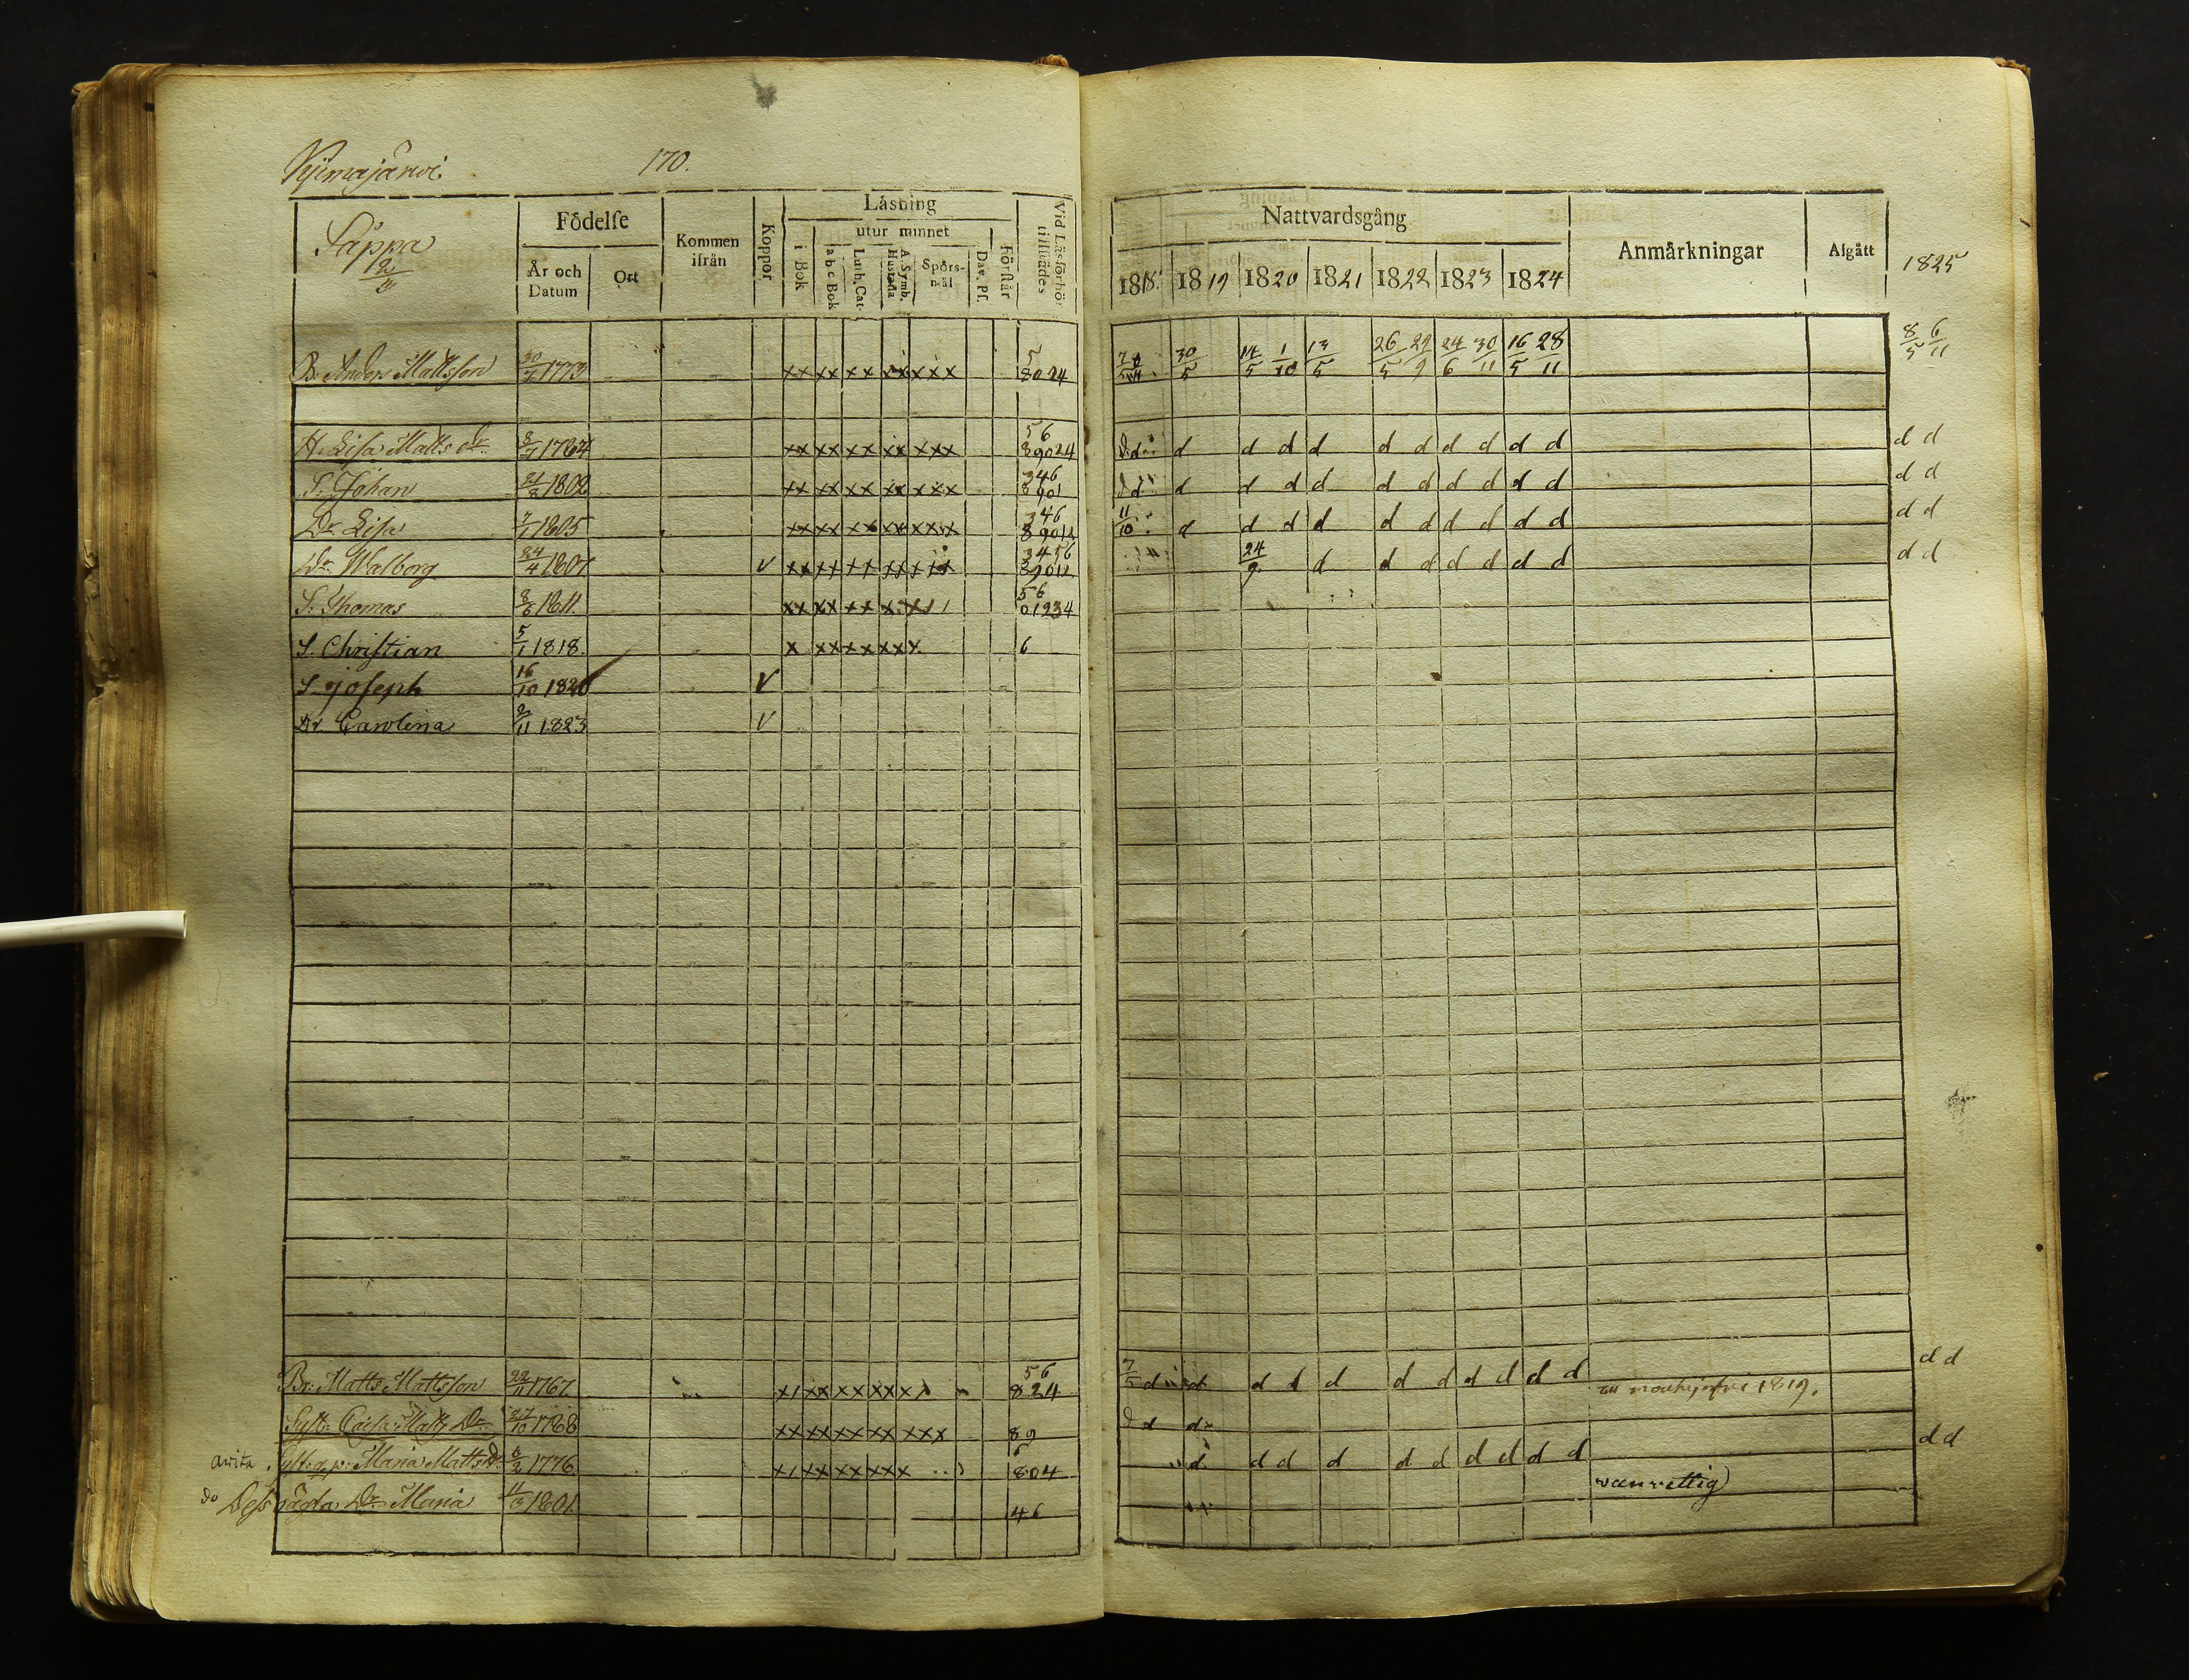 170.
Såppa
Födelse
År och Datum
Ort
Kommen ifrån
Koppor
Läsning
i Bok
utur minnet
a b c Bok
Luth. Cat.
A. Symb. Hustafla
Spörs-mål
Dav. Ps.
Förstår
Vid Läsförhör tillstädes
Nattvardsgång
1818. 1819 1820 1821 1822 1823 1824
Anmärkningar
Afgått
1825
B. Anders Mattsson 30/ 1773 xx xx xx xx xxx 5 8024 30/5 14/5 1/10 13/5 26/5 29/9 24/6 30/11 16/5 28/11 8/5 6/11
H. Lisa Matts Dr. 1764 xx xx xx xx xxx 56 89024 d d d d d d d d d d d d
S. Johan 1802 xx xx xx xx xxx 346 8901 d d d d d d d d d d d d
Dr. Lisa 1805 xx xx xx xx xxx 346 89012 11/10 d d d d d d d d d d d d
Dr. Walborg 24/4 1807 v xx xx xx xx 3456 24/9 d d d d d d d d d
S. Thomas 1811. xx xx xx 56 01234
S. Christian 5/1 1818. x xx xx xx x 6
S. Joseph 16/10 1820 v
Dr. Carolina 2/11 1823 v
Br: Matts Mattsson 22/11 1767. 56 824 7/5 d d d d d d d d d d d d 1819. d d
Syst: Caisa Matts Dr 27/10 1768 xx xx xx xx xxx 89 d d
Syst: Maria Matts Dr. 1776 6 804 d d d d d d d d d d d d
do Dess oägta Dr Maria 1801. 46 wanvettig